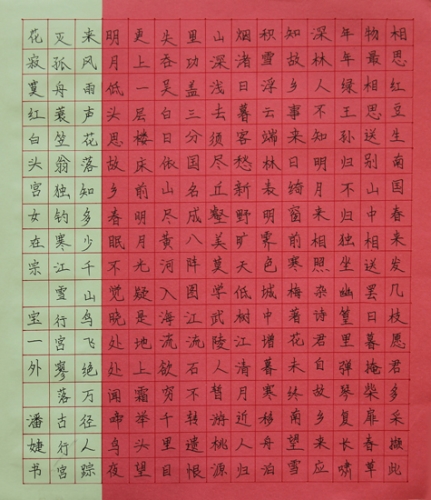 相思红豆生南国春来发几枝愿君多采撷此
物最相思送别山中相送罢日暮掩柴扉春草
年年绿王孙归不归独坐幽篁里弹琴复长啸
深林人不知明月来相照杂诗君自故乡来应
知故乡事来日绮窗前寒梅著花未终南望雪
积雪浮云端林表明霁色城中增暮寒移舟泊
烟渚日暮客愁新野旷天低树江清月近人归
山深浅去须尽丘壑美莫学武陵人暂游桃源
里功盖三分国名成八阵图江流石不转遗恨
头吞吴白日依山尽黄河入海流欲穷千里目
更上一层楼床前明月光疑是地上霜举头望
明月低头思故乡春眠不觉晓处处闻啼鸟夜
来风雨声花落知多少千山鸟飞绝万径人踪
灭孤舟蓑笠翁独钓寒江雪行宫寥落古行宫
花寂寞红白头宫女在宗 宝一外 潘婕书